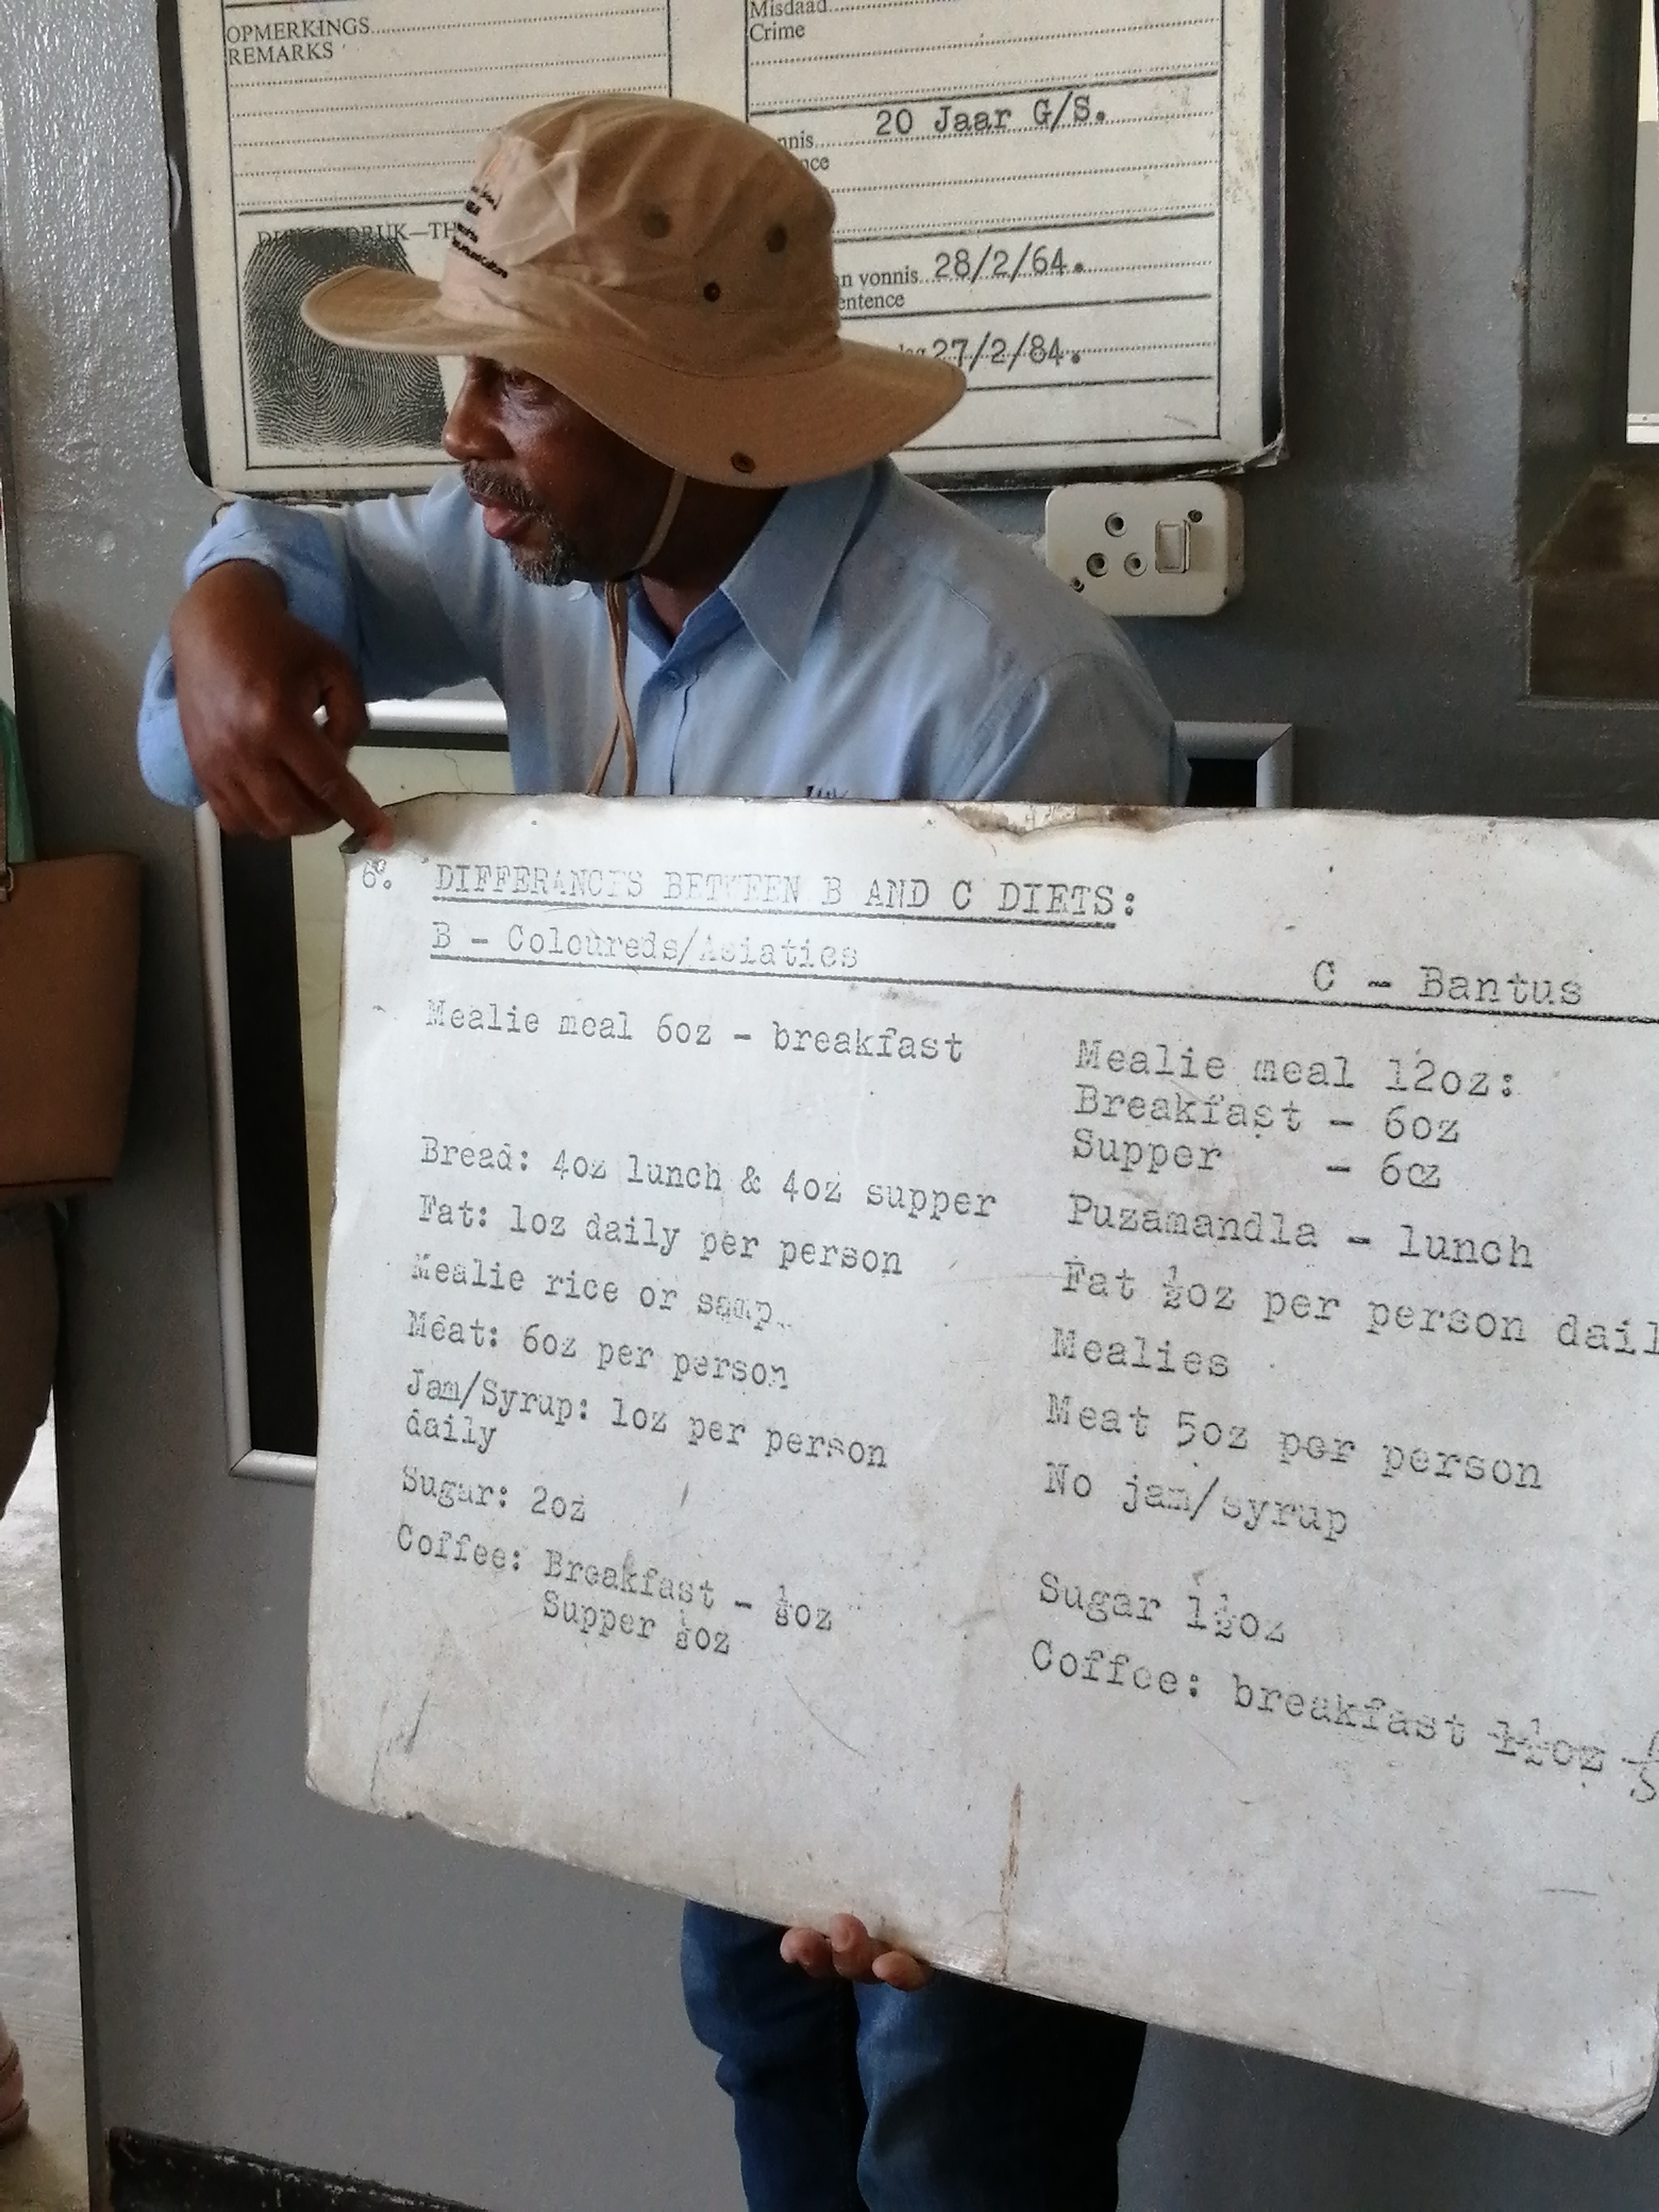 OPMERKINGS
REMARKS
Misdaad
Crime
20 Jaar G/S.
28/2/64.
27/2/84.
6. DIFFERANCES BETWEEN B AND C DIETS:
B - Coloureds/Asiatics
C - Bantus
Mealie meal 6oz - breakfast
Bread: 4oz lunch & 4oz supper
Fat: 1oz daily per person
Mealie rice or samp.
Meat: 6oz per person
Jam/Syrup: 1oz per person
daily
Sugar: 2oz
Coffee: Breakfast - ⅛oz
Supper ⅛oz
Mealie meal 12oz:
Breakfast - 6oz
Supper - 6oz
Puzamandla - lunch
Fat ½oz per person dail
Mealies
Meat 5oz per person
No jam/syrup
Sugar 1½oz
Coffee: breakfast